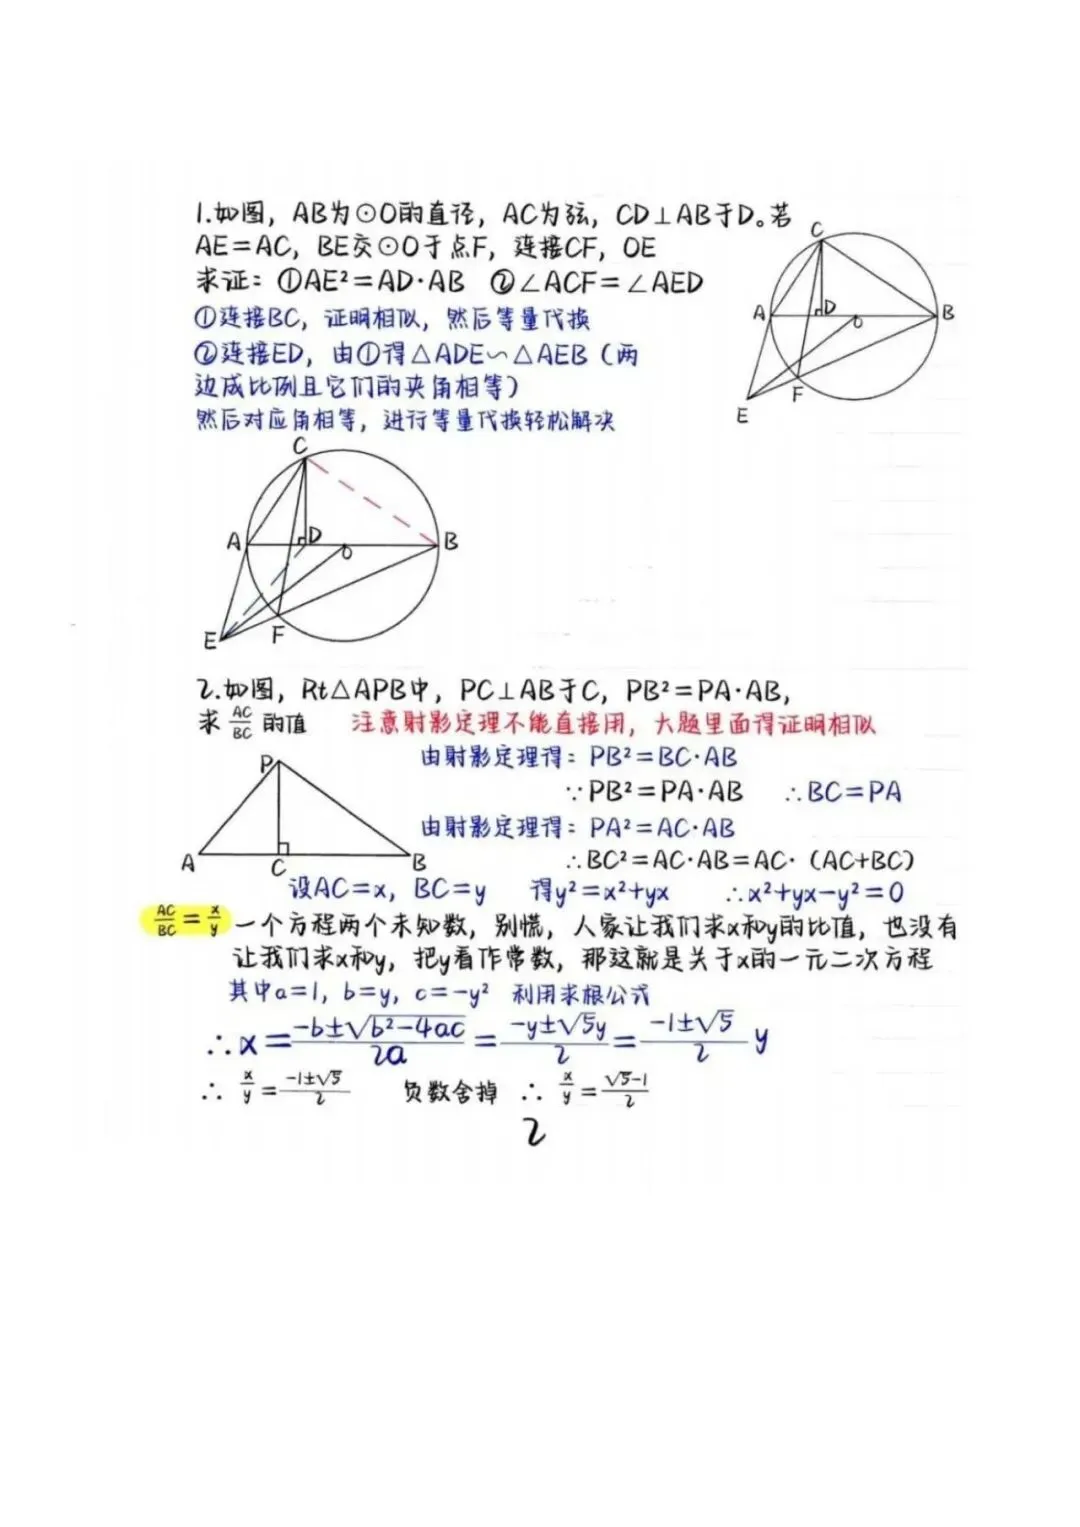 1.如图，AB为⊙O的直径，AC为弦，CD⊥AB于D。若
AE=AC，BE交⊙O于点F，连接CF，OE
求证：①AE²=AD·AB ②∠ACF=∠AED
①连接BC，证明相似，然后等量代换
②连接ED，由①得△ADE∽△AEB（两
边成比例且它们的夹角相等）
然后对应角相等，进行等量代换轻松解决
C
A
D
O
B
E
F
C
A
D
O
B
E
F
2.如图，Rt△APB中，PC⊥AB于C，PB²=PA·AB，
求AC/BC的值 注意射影定理不能直接用，大题里面得证明相似
由射影定理得：PB²=BC·AB
∵PB²=PA·AB ∴BC=PA
由射影定理得：PA²=AC·AB
∴BC²=AC·AB=AC·（AC+BC）
P
A
C
B
设AC=x，BC=y 得y²=x²+yx ∴x²+yx-y²=0
AC/BC=x/y 一个方程两个未知数，别慌，人家让我们求x和y的比值，也没有
让我们求x和y，把y看作常数，那这就是关于x的一元二次方程
其中a=1，b=y，c=-y² 利用求根公式
∴x=(-b±√(b²-4ac))/2a=(-y±√5y)/2=(-1±√5)/2 y
∴x/y=(-1±√5)/2 负数舍掉 ∴x/y=(√5-1)/2
2